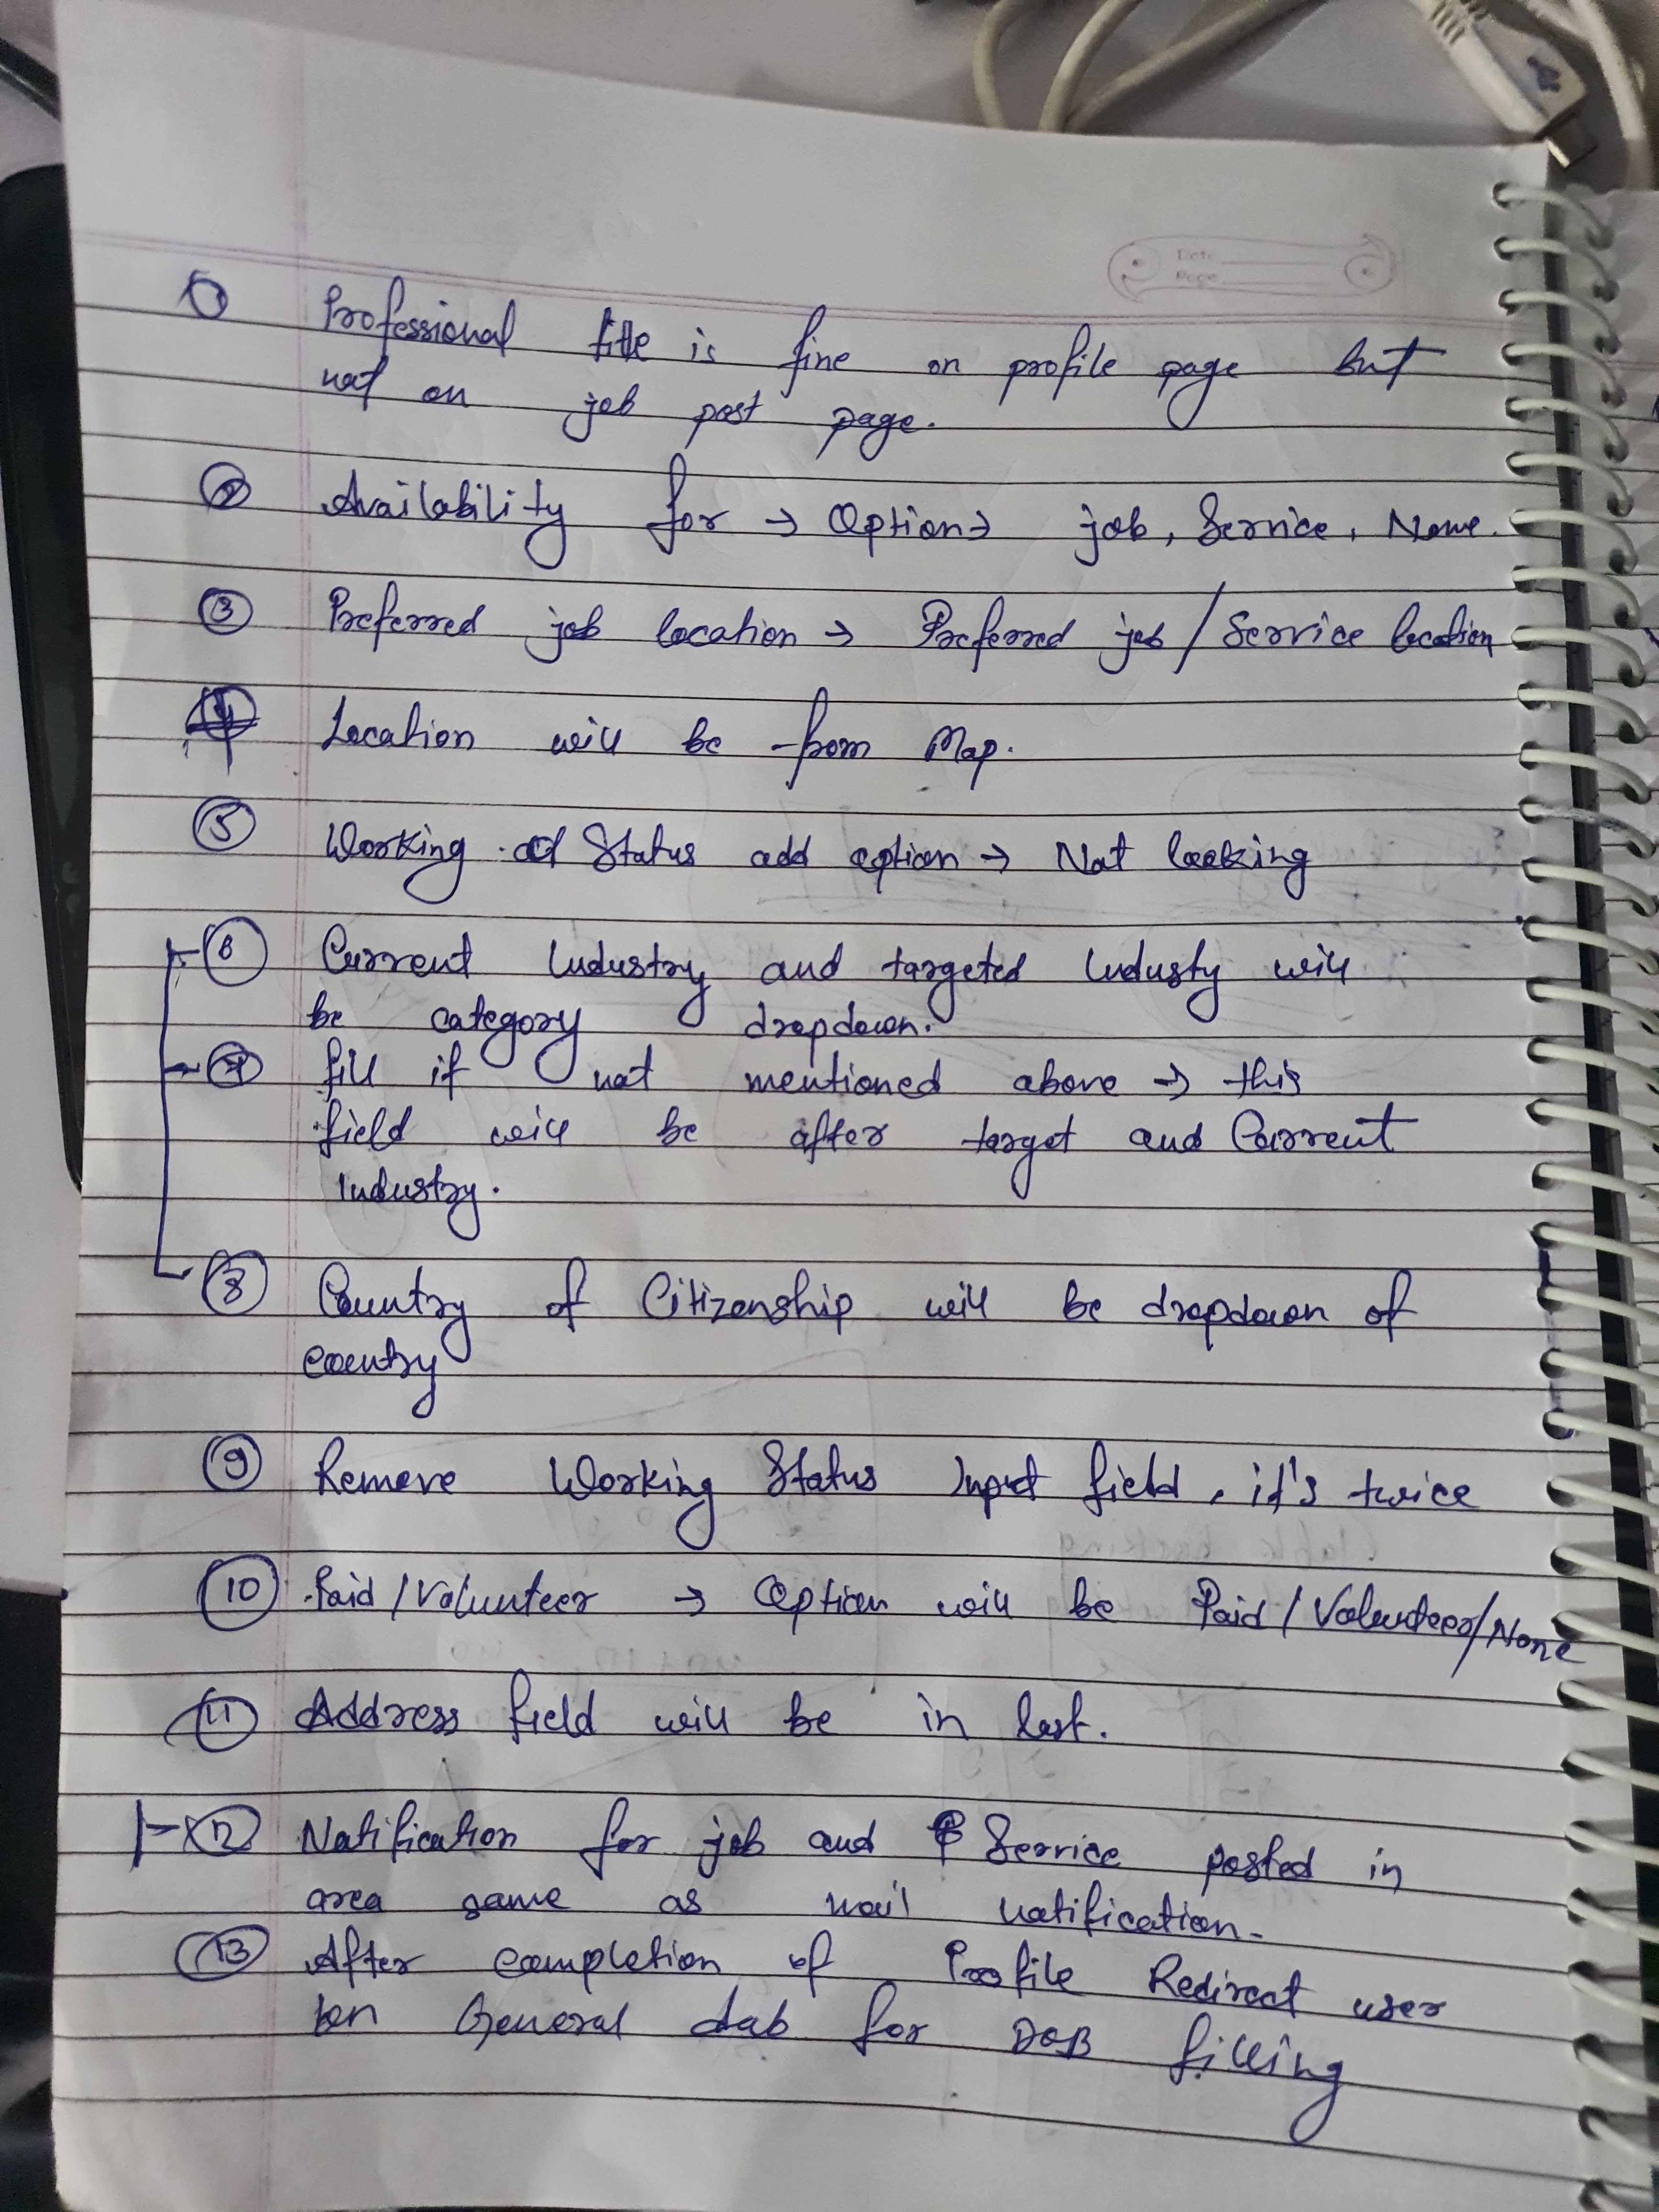 Date
Page
① Professional title is fine on profile page but
not on job post page.
② Availability for → Option → job, Service, None.
③ Preferred job location → Preferred job / Service location
④ Location will be from Map.
⑤ Working Status add option → Not looking
⑥ Current Industry and targeted Industy will
be category dropdown.
⑦ fill if not mentioned above → this
field will be after target and Current
Industry.
⑧ Country of Citizenship will be dropdown of
country
⑨ Remove Working Status Input field, it's twice
⑩ Paid / Volunteer → Option will be Paid / Volunteer / None
⑪ Address field will be in last.
⑫ Notification for job and Service posted in
area same as mail notification.
⑬ After completion of Profile Redirect user
on General tab for DOB filling